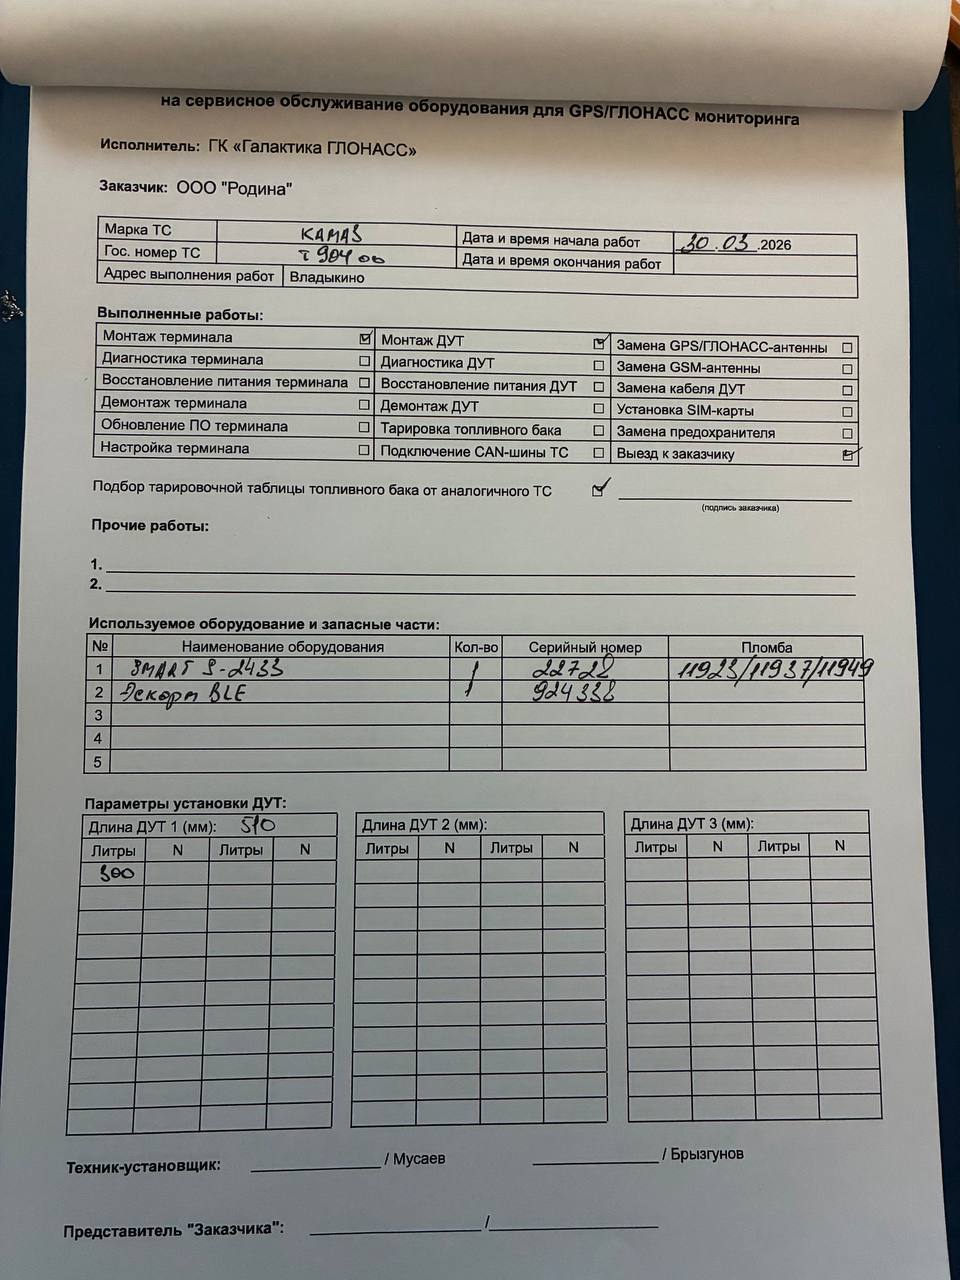 на сервисное обслуживание оборудования для GPS/ГЛОНАСС мониторинга
Исполнитель: ГК «Галактика ГЛОНАСС»
Заказчик: ООО "Родина"
Марка ТС КАМАЗ Дата и время начала работ 30.03.2026
Гос. номер ТС т 904 оо Дата и время окончания работ
Адрес выполнения работ Владыкино
Выполненные работы:
Монтаж терминала ☑ Монтаж ДУТ ☑ Замена GPS/ГЛОНАСС-антенны ☐
Диагностика терминала ☐ Диагностика ДУТ ☐ Замена GSM-антенны ☐
Восстановление питания терминала ☐ Восстановление питания ДУТ ☐ Замена кабеля ДУТ ☐
Демонтаж терминала ☐ Демонтаж ДУТ ☐ Установка SIM-карты ☐
Обновление ПО терминала ☐ Тарировка топливного бака ☐ Замена предохранителя ☐
Настройка терминала ☐ Подключение CAN-шины ТС ☐ Выезд к заказчику ☑
Подбор тарировочной таблицы топливного бака от аналогичного ТС ☑
(подпись заказчика)
Прочие работы:
1.
2.
Используемое оборудование и запасные части:
№ Наименование оборудования Кол-во Серийный номер Пломба
1 SMART S-2433 1 22728 11923/11937/11949
2 Эскорт BLE 1 924338
3
4
5
Параметры установки ДУТ:
Длина ДУТ 1 (мм): 510 Длина ДУТ 2 (мм): Длина ДУТ 3 (мм):
Литры N Литры N Литры N Литры N Литры N Литры N
300
Техник-установщик: / Мусаев / Брызгунов
Представитель "Заказчика": /